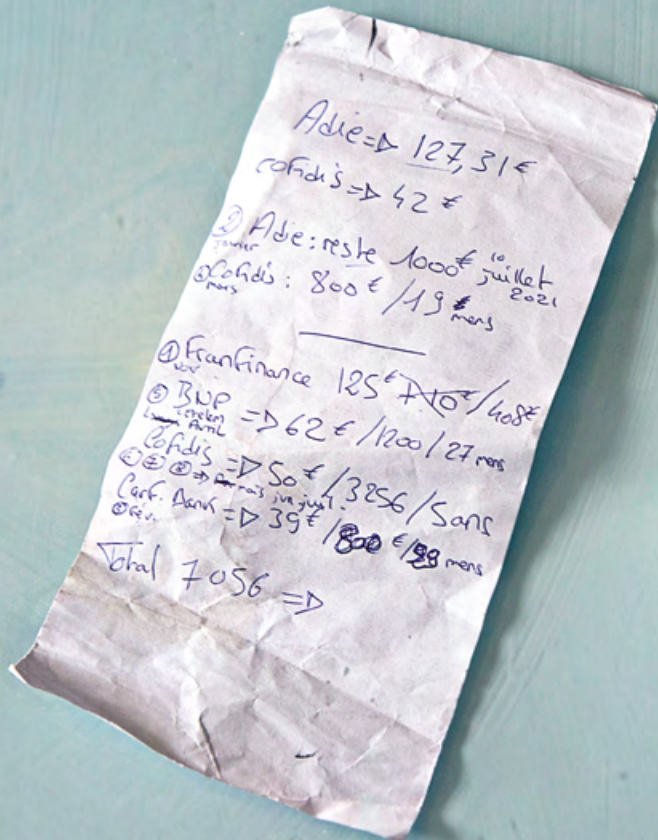 Adie => 127,31 €
cofidis => 42 €
② Adie : reste 1000 € 10 juillet 2021
janvier
③ Cofidis : 800 € / 19 mens
mars
① Franfinance 125 € / 408 €
⑤ BNP => 62 € / 1200 / 27 mens
Avril
Cofidis => 50 € / 3256 / 5 ans
mais juin juil.
Carf. Bank => 39 € / 800 € / 29 mens
fév.
Total 7056 =>